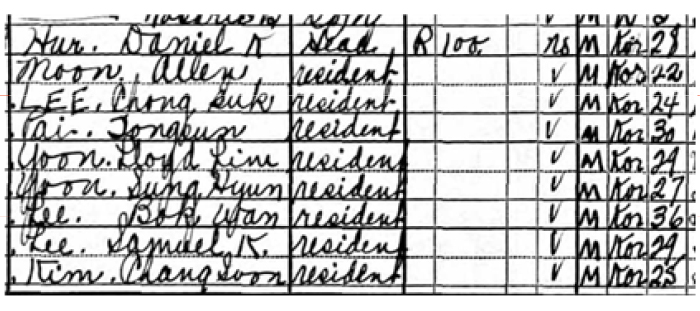 Hur. Daniel K Head R 100. no M Kor 28
Moon, Allen, resident √ M Kor 22
LEE. Chong Suk resident √ M Kor 24
Pai. Tongsun resident √ M Kor 30
Yoon. Lloyd Lime resident √ M Kor 29
Yoon. Sung Hyun resident √ M Kor 27
Lee. Bok Wan resident √ M Kor 36
Lee. Samuel K. resident √ M Kor 29
Kim. Chang Soon resident √ M Kor 25